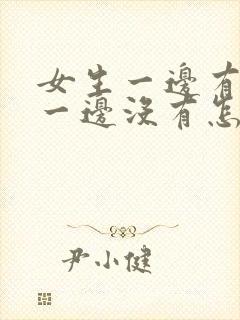 女生一邊有
一邊沒有怎
尹小健